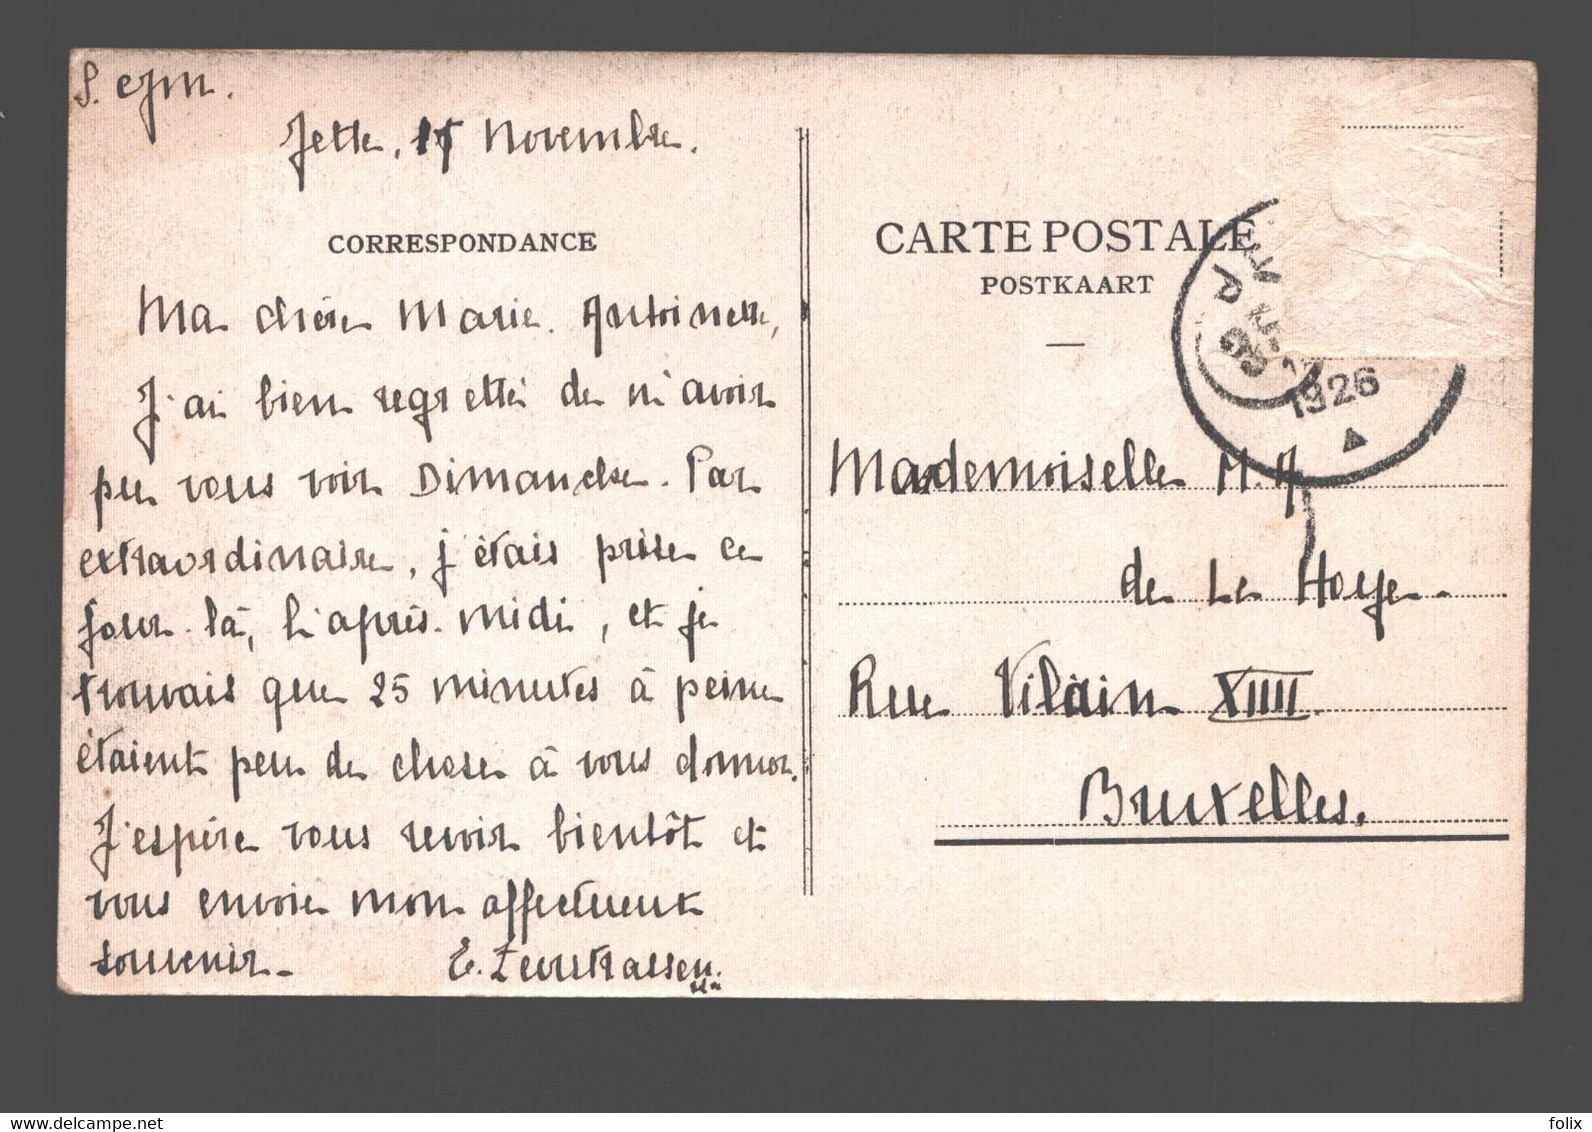 Jette, 15 Novembre.
CORRESPONDANCE
Ma chère Marie-Antoinette,
J'ai bien regretté de n'avoir
pu vous voir Dimanche. Par
extraordinaire, j'étais prise ce
jour-là, l'après-midi, et je
trouvais que 25 minutes à peine
étaient peu de chose à vous donner.
J'espère vous revoir bientôt et
vous envoie mon affectueux
souvenir. E.
CARTE POSTALE
POSTKAART
1926
Mademoiselle M. A.
de Le Hoye.
Rue Vilain XIIII.
Bruxelles.
www.delcampe.net
folix